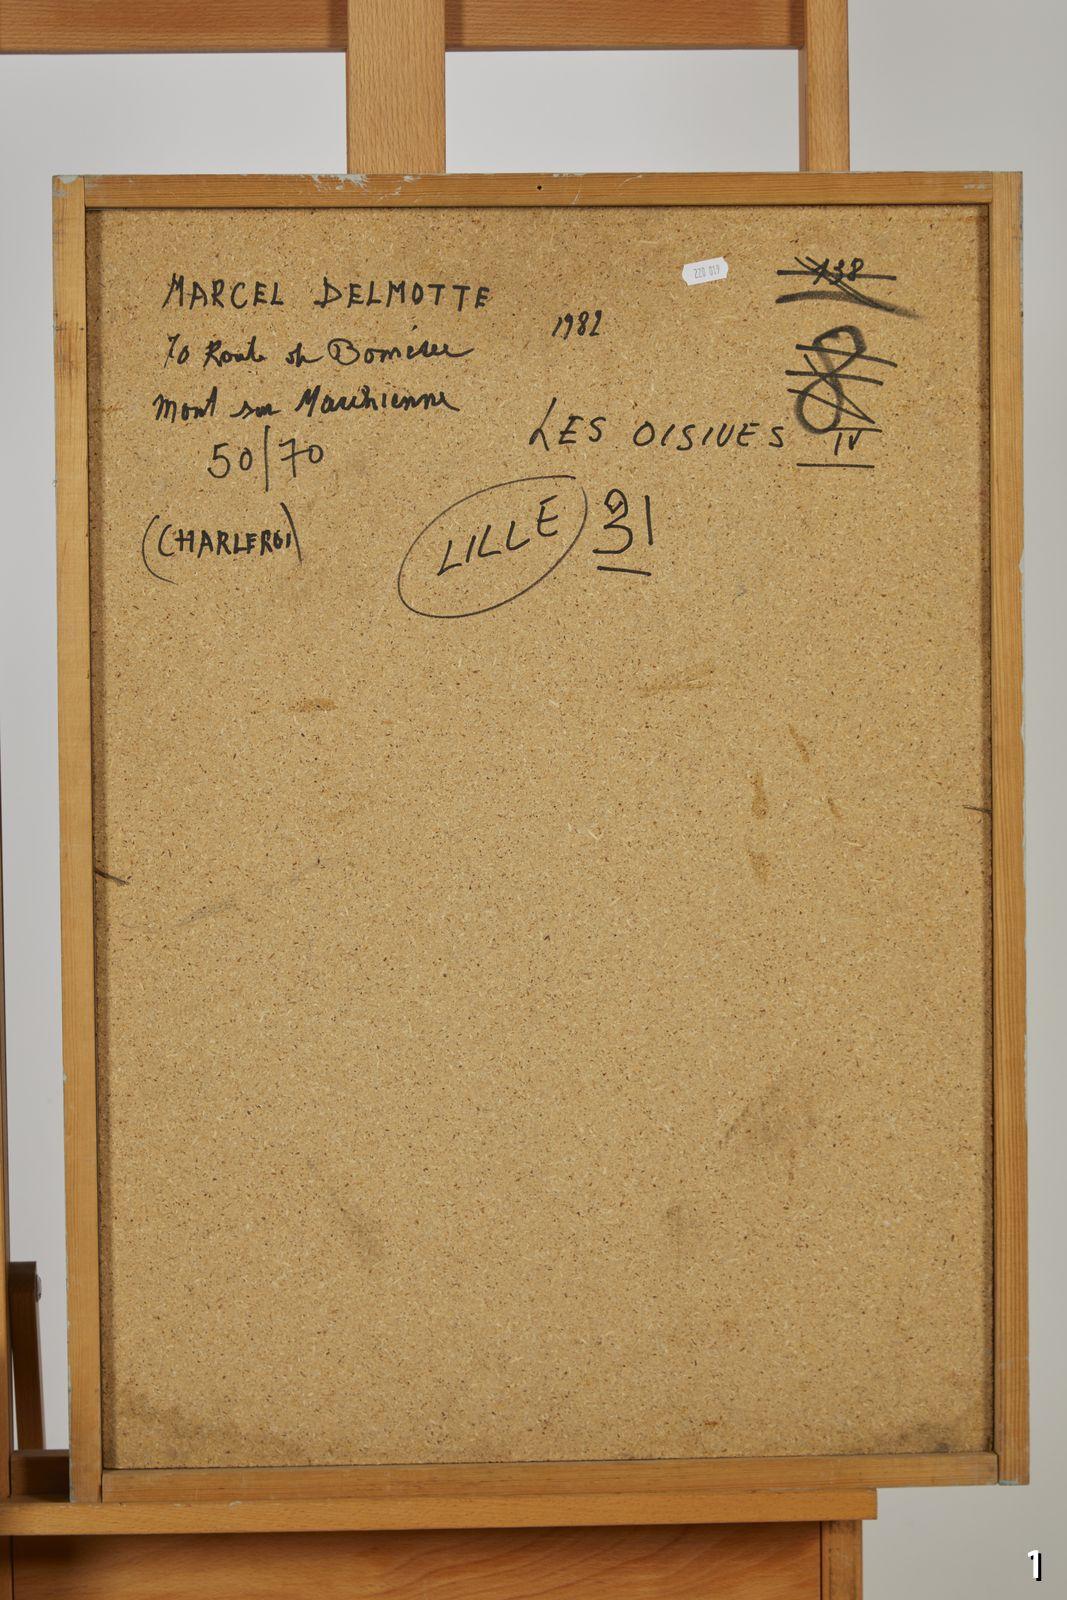 MARCEL DELMOTTE
1982
70 Route de Bomérée
Mont sur Marchienne
50/70
(CHARLEROI)
LES OISIVES
IV
LILLE 31
220 019
138
1